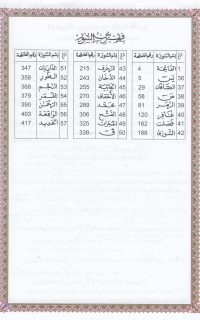 إسم السورة رقم الصفحة إسم السورة رقم الصفحة إسم السورة رقم الصفحة
الفاتحة 4 43 الزخرف 215 51 الذاريات 347
36 يس 5 44 الدخان 243 52 الطور 358
37 الصافات 29 45 الجاثية 255 53 النجم 368
38 ص 58 46 الأحقاف 270 54 القمر 379
39 الزمر 81 47 محمد 289 55 الرحمن 390
40 غافر 120 48 الفتح 306 56 الواقعة 403
41 فصلت 162 49 الحجرات 325 57 الحديد 417
42 الشورى 188 50 ق 336